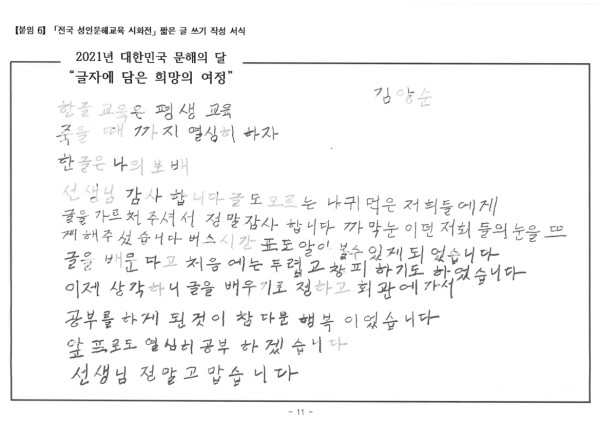 【붙임 6】「전국 성인문해교육 시화전」 짧은 글 쓰기 작성 서식
2021년 대한민국 문해의 달
“글자에 담은 희망의 여정”
김양순
한글 교육은 평생 교육
죽을 때 까지 열심히 하자
한글은 나의 보배
선생님 감사 합니다 글도 모르는 나귀먹은 저희들에게
글을 가르처 주셔서 정말감사 합니다 까막눈 이던 저희 들의눈을 뜨
게 해주셨습니다 버스시간 표도 알아 볼수있게되었습니다
글을 배운 다고 처음 에는두렵고 창피하기도 하였습니다
이제 상각하니 글을 배우기로 정하고 회관에가서
공부를 하게 된것이 참다문 행복 이었습니다
앞프로도 열심히공부 하겠습니다
선생님 정말고맙습니다
- 11 -